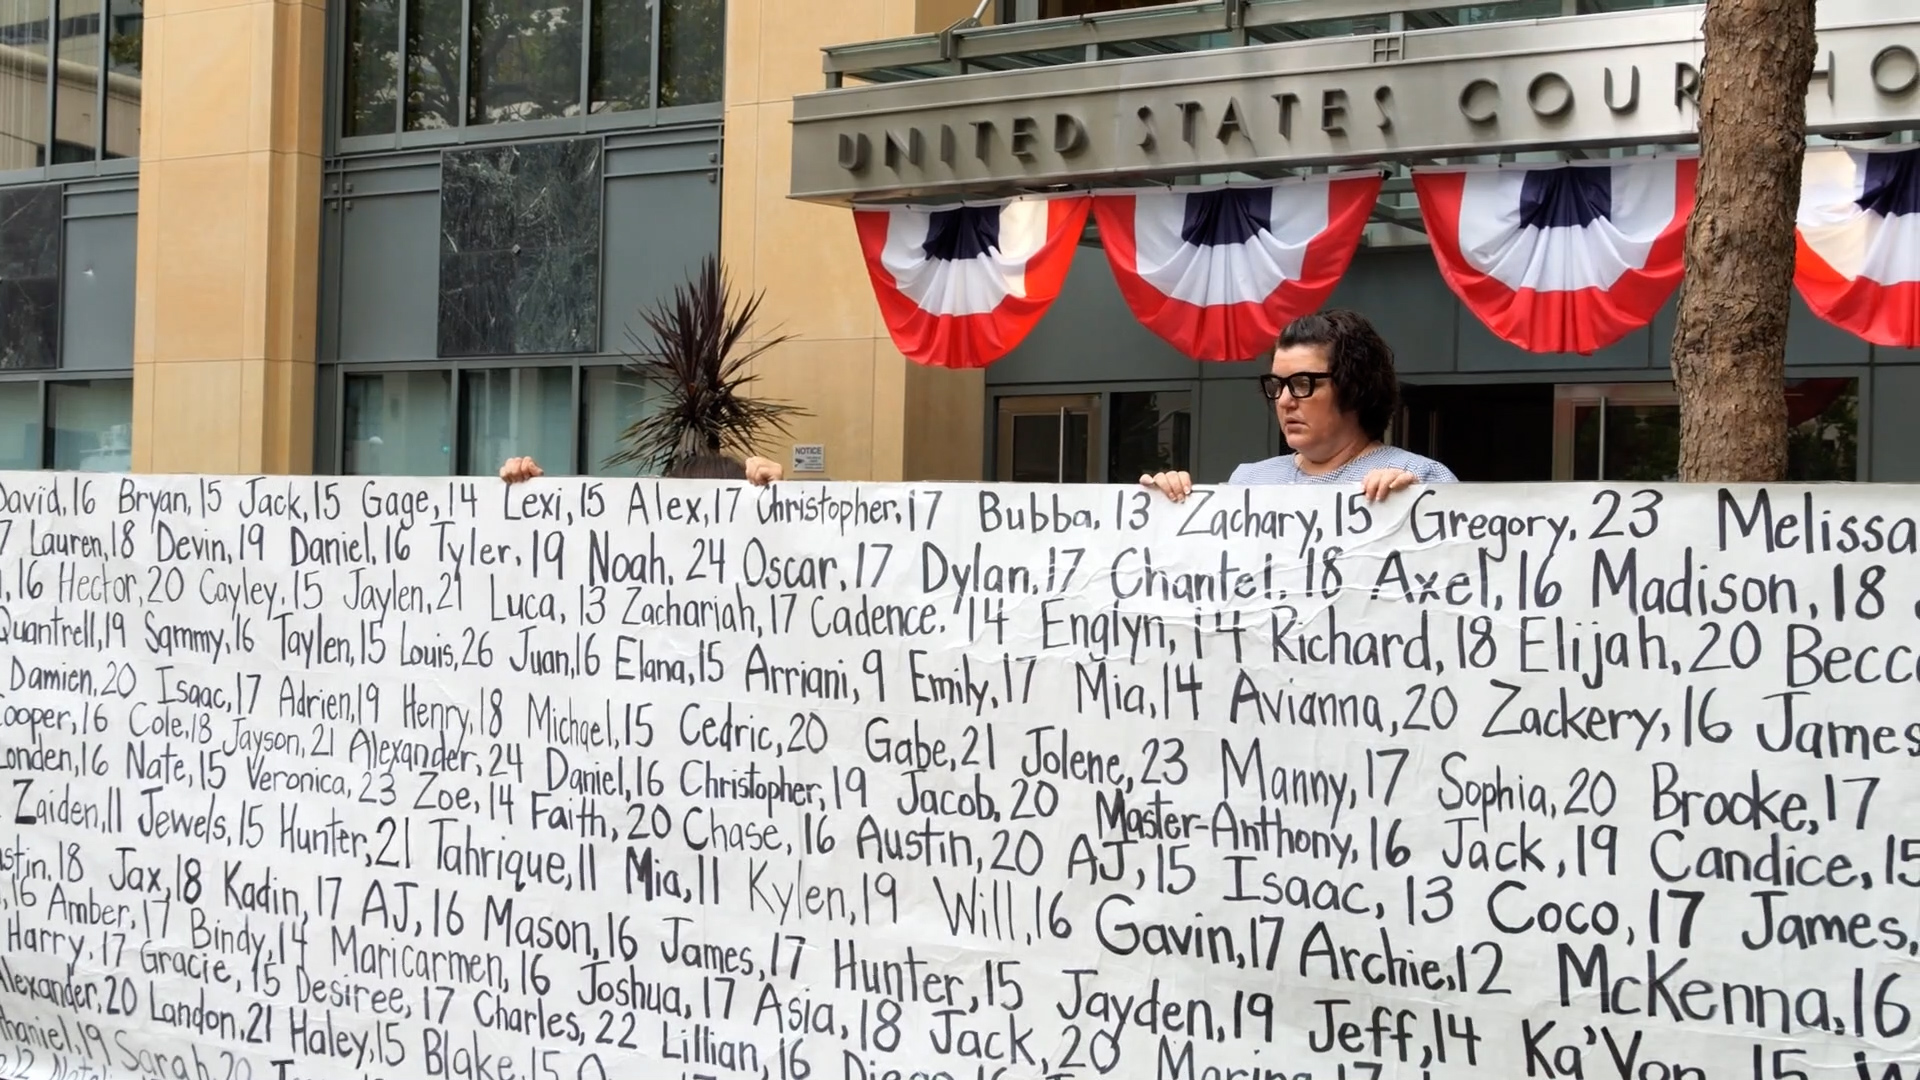 UNITED STATES COUR HO
NOTICE
David,16 Bryan,15 Jack,15 Gage,14 Lexi,15 Alex,17 Christopher,17 Bubba,13 Zachary,15 Gregory,23 Melissa
7 Lauren,18 Devin,19 Daniel,16 Tyler,19 Noah,24 Oscar,17 Dylan,17 Chantel,18 Axel,16 Madison,18
,16 Hector,20 Cayley,15 Jaylen,21 Luca,13 Zachariah,17 Cadence,14 Englyn,14 Richard,18 Elijah,20 Becc
Quantrell,19 Sammy,16 Taylen,15 Louis,26 Juan,16 Elana,15 Arriani,9 Emily,17 Mia,14 Avianna,20 Zackery,16 James
Damien,20 Isaac,17 Adrien,19 Henry,18 Michael,15 Cedric,20 Gabe,21 Jolene,23 Manny,17 Sophia,20 Brooke,17
ooper,16 Cole,18 Jayson,21 Alexander,24 Daniel,16 Christopher,19 Jacob,20 Master-Anthony,16 Jack,19 Candice,15
Londen,16 Nate,15 Veronica,23 Zoe,14 Faith,20 Chase,16 Austin,20 AJ,15 Isaac,13 Coco,17 James,
Zaiden,11 Jewels,15 Hunter,21 Tahrique,11 Mia,11 Kylen,19 Will,16 Gavin,17 Archie,12 McKenna,16
stin,18 Jax,18 Kadin,17 AJ,16 Mason,16 James,17 Hunter,15 Jayden,19 Jeff,14 Ka'Von 15
,16 Amber,17 Bindy,14 Maricarmen,16 Joshua,17 Asia,18 Jack,20
Harry,17 Gracie,15 Desiree,17 Charles,22 Lillian,16
Alexander,20 Landon,21 Haley,15 Blake,15
thaniel,19 Sarah,20